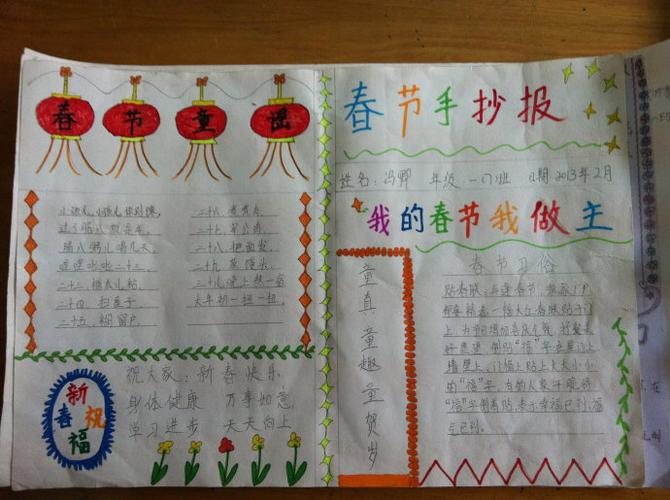 春节童谣
小孩儿小孩儿你别馋,
过了腊八就是年。
腊八粥儿喝几天,
哩哩啦啦二十三。
二十三,糖瓜儿粘,
二十四,扫房子,
二十五,糊窗户,
二十六,煮煮肉,
二十七,宰公鸡,
二十八,把面发,
二十九,蒸馒头,
三十晚上熬一宵
大年初一扭一扭。
新春祝福
祝大家:新春快乐
身体健康 万事如意
学习进步 天天向上
春节手抄报
姓名:冯 年级:一(1)班 日期2013年2月
我的春节我做主
童真童趣童贺岁
春节习俗
贴春联:每逢春节
一幅大红春联贴于门
上,为节日增加喜庆气氛
"福"字
墙壁上、门楣上贴上大大小小
的"福"字,有的人家干脆将
"福"字倒着贴,表示幸福已到,福
气已到。